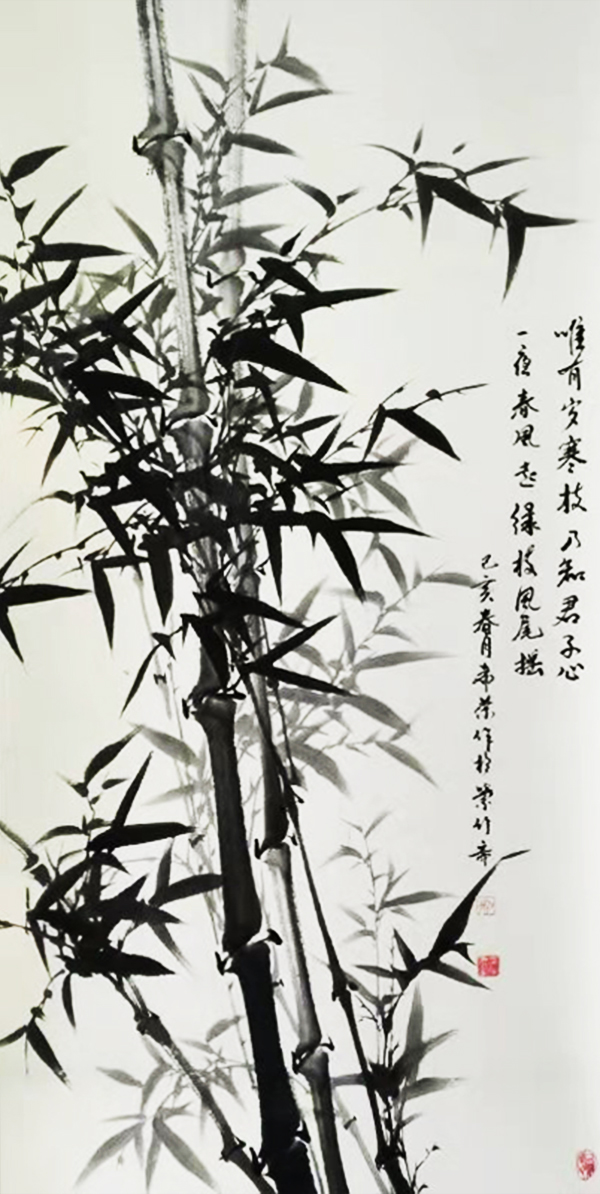 唯有岁寒枝乃知君子心
一夜春风起绿枝凤尾摇
己亥春月韦荣作於紫竹斋